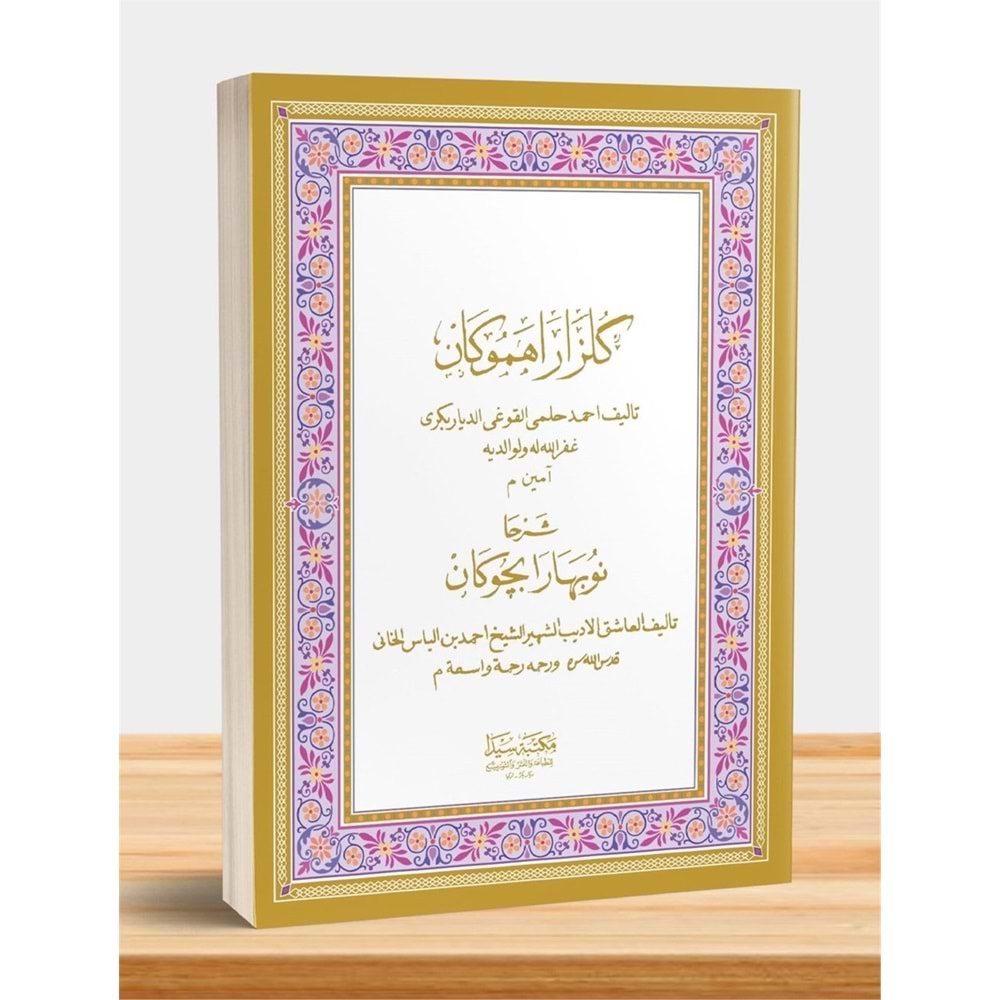 گُلزَارَا هَمُوكَانْ
تاليف احمد حلمى القوغى الديار بكرى
غفر الله له ولوالديه
آمين م
شَرْحَا
نُوبَهَارَا بچُوكَانْ
تاليف العاشق الاديب الشهير الشيخ احمد بن الياس الخانى
قدس الله سره ورحمه رحمة واسعة م
مكتبة سيدا
للطباعة والنشر والتوزيع